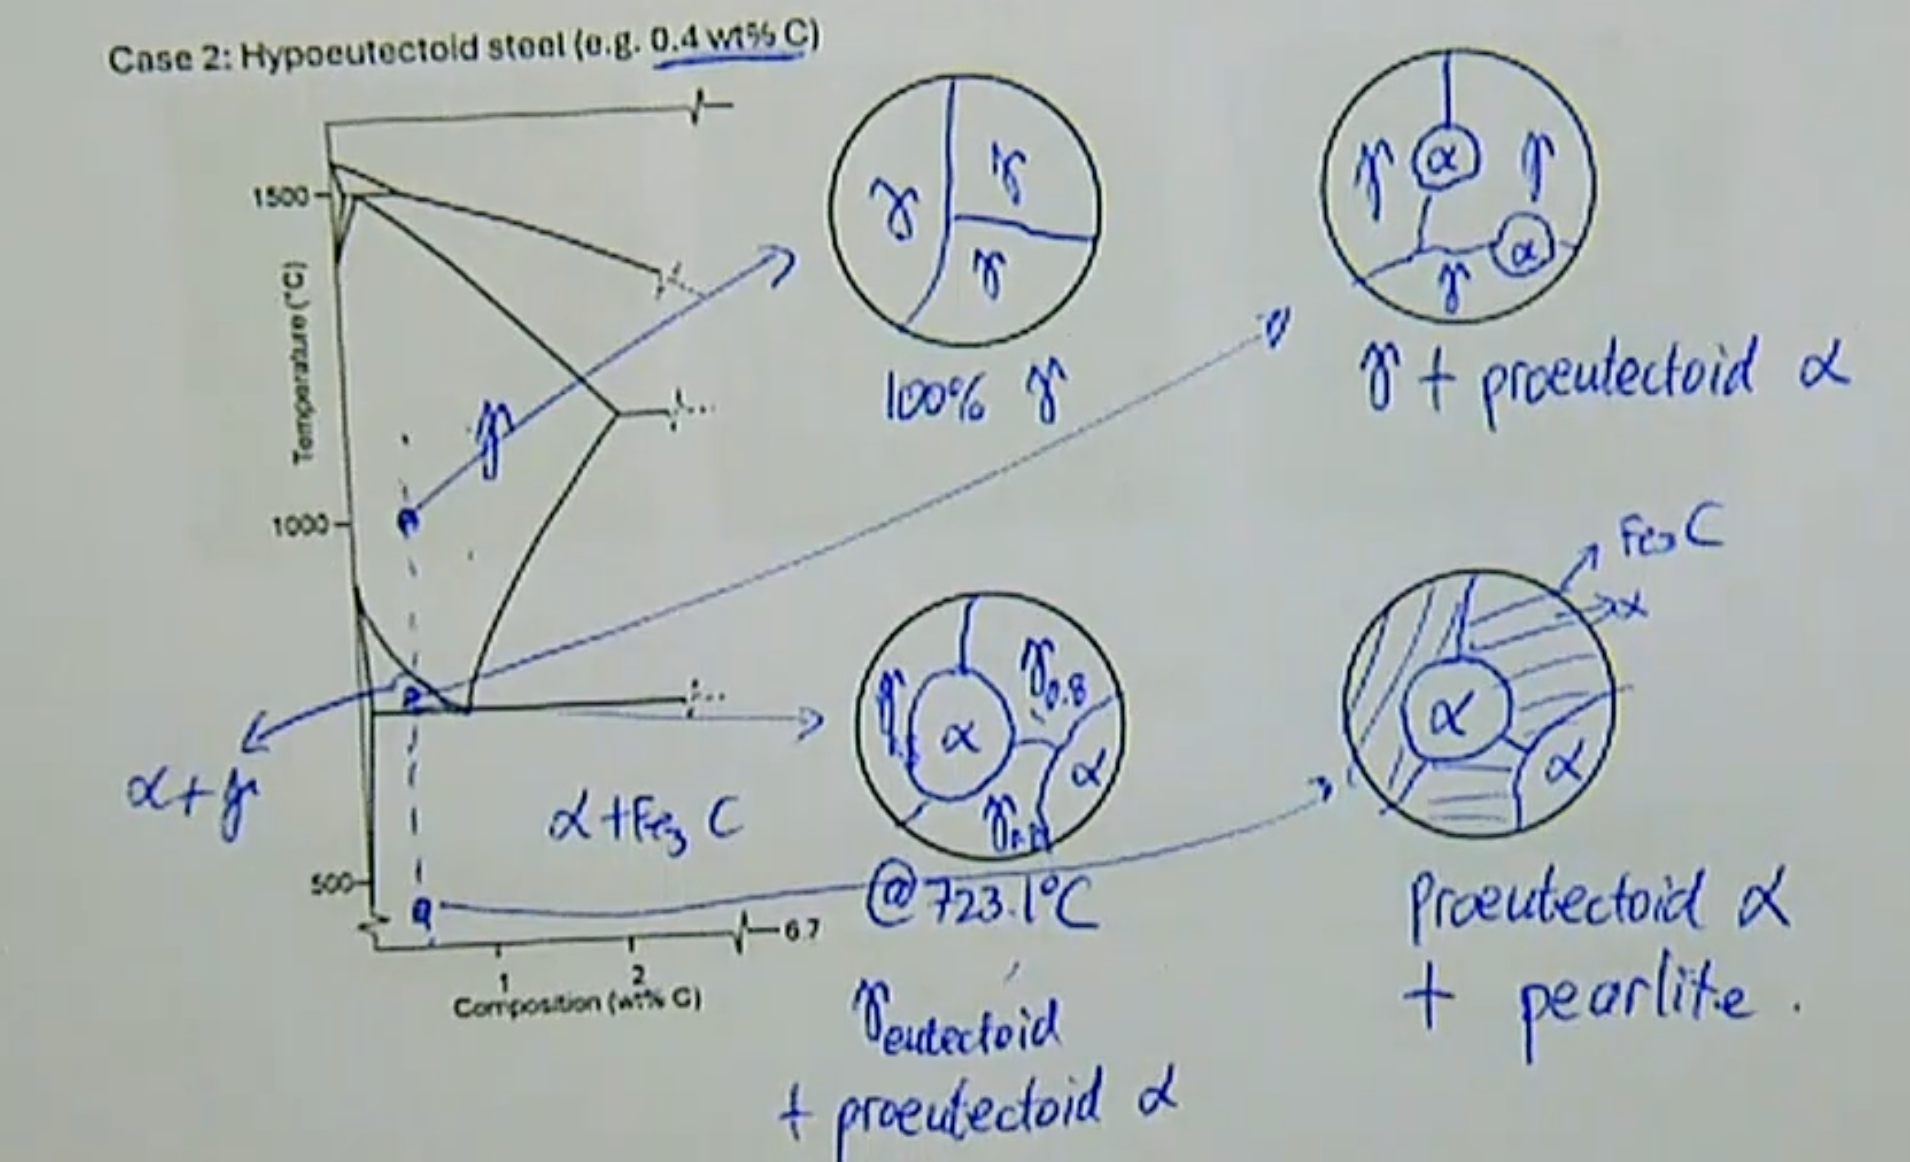 Case 2: Hypoeutectoid steel (e.g. 0.4 wt% C)
1500
1000
500
Temperature (°C)
1
2
6.7
Composition (wt% C)
γ
α + γ
α + Fe3 C
γ
γ
γ
100% γ
γ
α
γ
α
γ
γ + proeutectoid α
γ
α
γ0.8
α
@ 723.1°C
γeutectoid
+ proeutectoid α
Fe3 C
α
α
α
Proeutectoid α
+ pearlite.